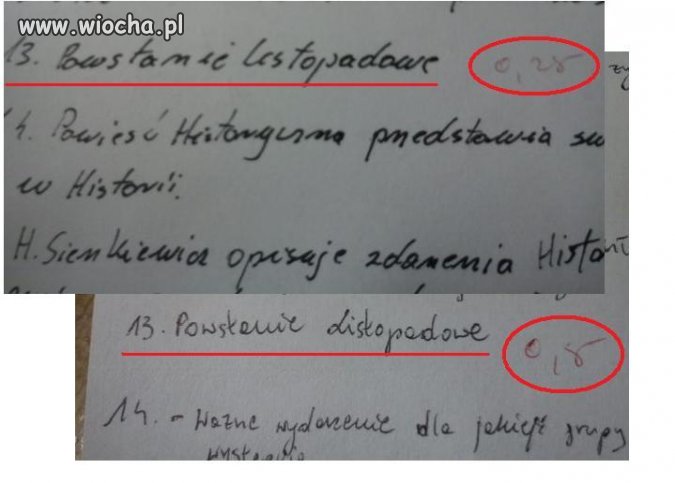 www.wiocha.pl
13. Powstanie Listopadowe 0,25
14. Powieść Historyczna przedstawia sw
w Historii.
H. Sienkiewicz opisuje zdarzenia Histor
13. Powstanie Listopadowe 0,5
14. - Ważne wydarzenie dla jakiejś grupy